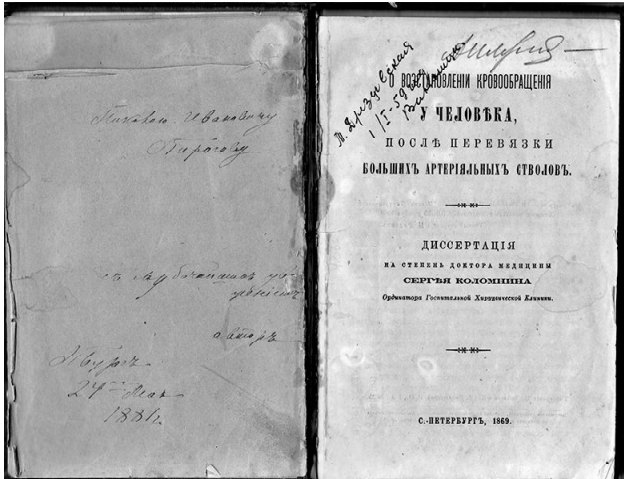 Николаю Ивановичу
Пирогову
съ глубочайшим
авторъ
24 Мая
1881г.
О ВОЗСТАНОВЛЕНІИ КРОВООБРАЩЕНІЯ
У ЧЕЛОВѢКА,
ПОСЛѢ ПЕРЕВЯЗКИ
БОЛЬШИХЪ АРТЕРІЯЛЬНЫХЪ СТВОЛОВЪ.
ДИССЕРТАЦІЯ
НА СТЕПЕНЬ ДОКТОРА МЕДИЦИНЫ
СЕРГѢЯ КОЛОМНИНА
Ординатора Госпитальной Хирургической Клиники.
С.-ПЕТЕРБУРГЪ, 1869.